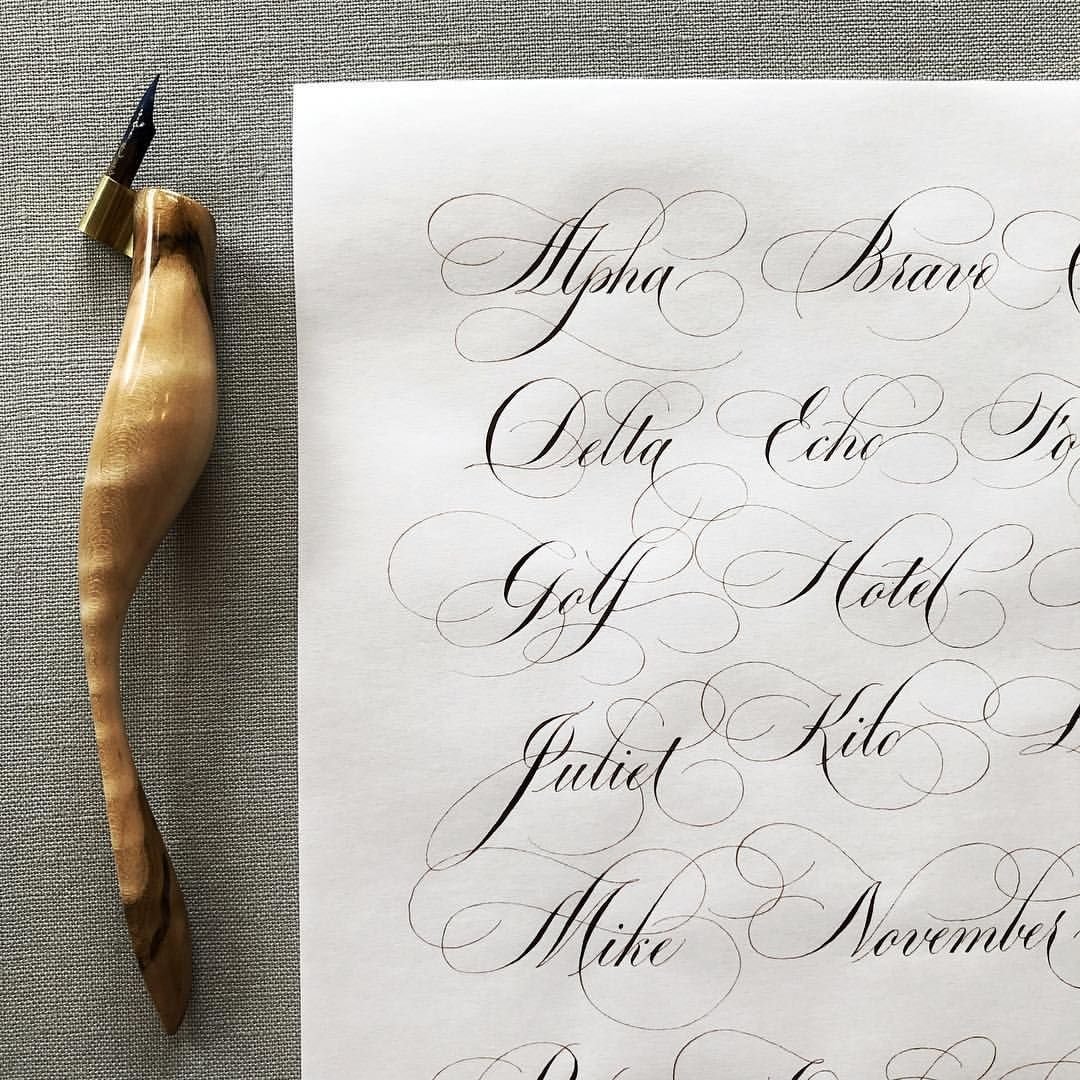 Alpha Bravo
Delta Echo Fo
Golf Hotel
Juliet Kilo L
Mike November